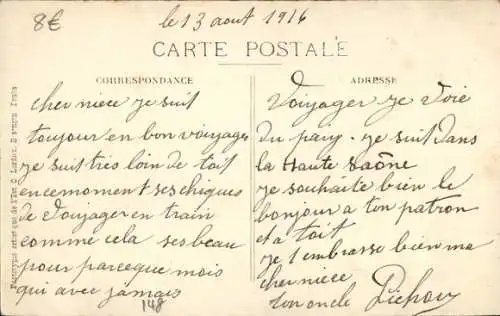 8€
le 13 aout 1916
CARTE POSTALE
CORRESPONDANCE
cher niece je suit
toujour en bon voyager
je suit tres loin de toit
en cemoment ses chiques
de voyager en train
comme cela ses beau
pour parceque mois
qui avec jamais
148
ADRESSE
Voyager je voie
du pauy. je suit dans
la Haute Saône
je souhaite bien le
bonjour a ton patron
et a toit
je t'embrasse bien ma
cher niece
ton oncle